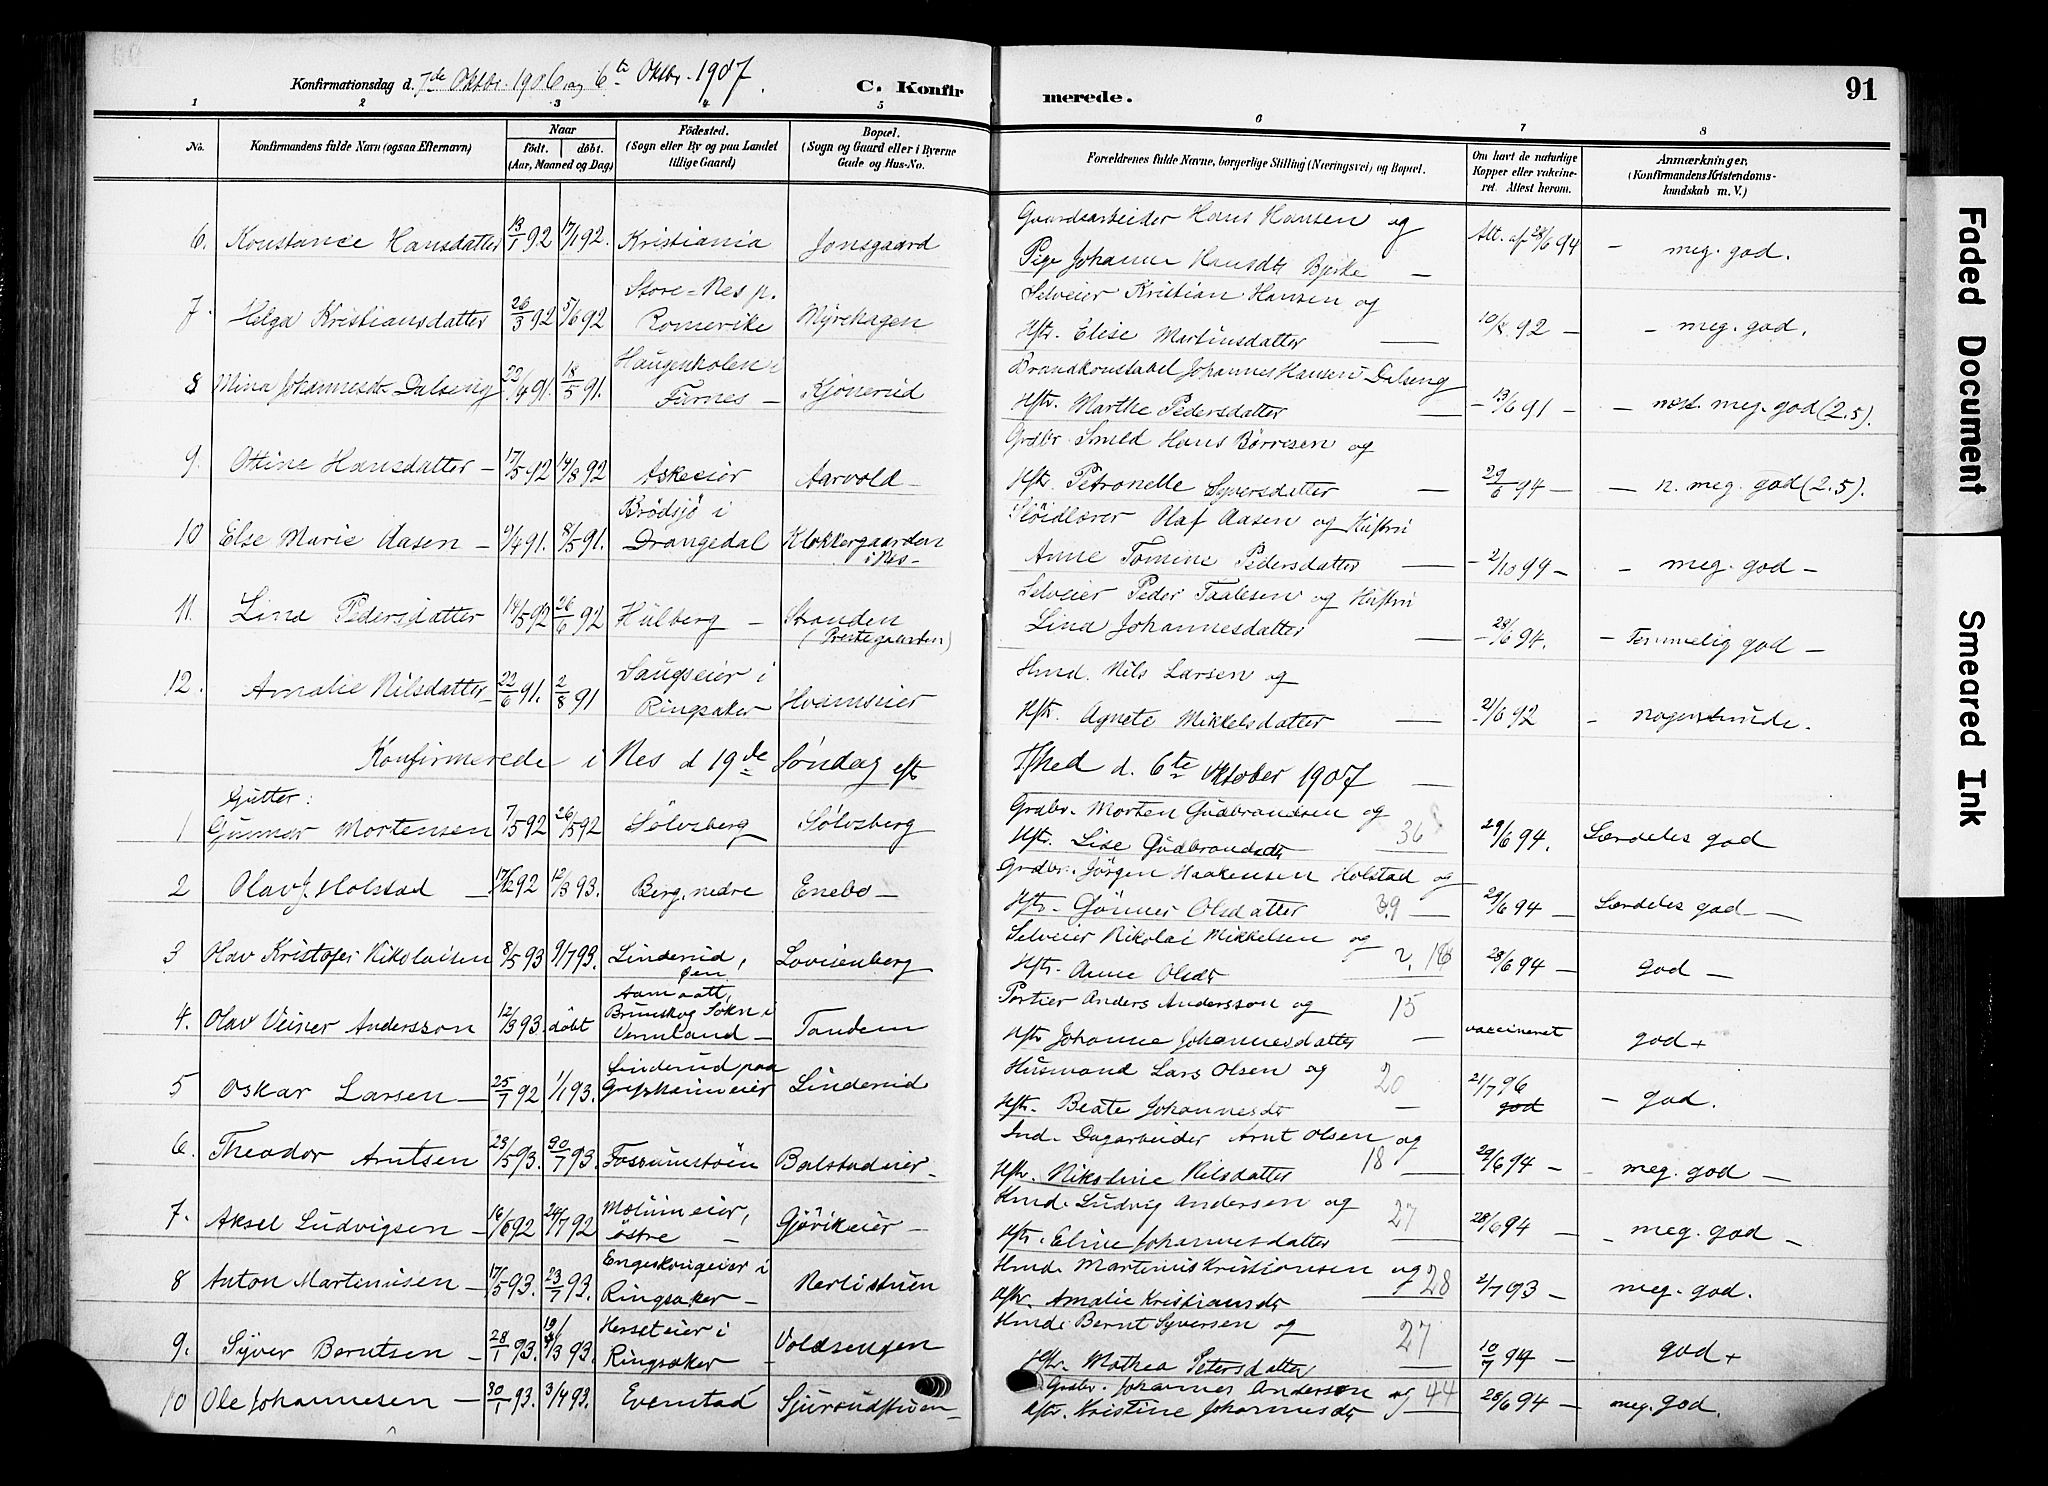 Konfirmationsdag d. 7de Oktbr. 1906 og 6te Oktbr. 1907.
C. Konfirmerede.
91
1 2 3 4 5 6 7 8
No.
Konfirmandens fulde Navn (ogsaa Efternavn)
Naar
født. døbt.
(Aar, Maaned og Dag)
Fødested.
(Sogn eller By og paa Landet
tillige Gaard)
Bopæl.
(Sogn og Gaard eller i Byerne
Gade og Hus-No.
Forældrenes fulde Navne, borgerlige Stilling (Næringsvei) og Bopæl.
Om havt de naturlige
Kopper eller vakcine-
ret. Attest herom.
Anmærkninger,
(Konfirmandens Kristendoms-
kundskab m. V.)
6. Konstance Hansdatter 13/1 92 17/1 92. Kristiania Jonsgaard Gaardsarbeider Hans Hansen og
Pige Johanne Hansdt. Bjerke — Att. af 28/6 94 – meg. god.
7. Helga Kristiansdatter 26/3 92 5/6 92 Store-Nes p.
Romerike Myrehagen Selveier Kristian Hansen og
Hstr. Elise Martinsdatter — 10/8 92 – – meg. god.
8 Mina Johannesdt. Dalseng 22/4 91. 18/5 91. Haugenkolen i
Furnes – Kjønerud Brandkonstabel Johannes Hansen Dalseng
Hstr. Marthe Pedersdatter — – 13/6 91 – – næst. meg. god (2.5).
9. Ottine Hansdatter – 17/5 92 14/8 92 Askeeiør Aarvold – Grdbr. Smed Hans Børresen og
Hstr. Petronelle Syversdatter — 29/6 94 – – n. meg. god (2.5).
10 Else Marie Aasen – 9/4 91. 8/5 91. Brødsjø i
Drangedal Klokkergaarden
i Nes – Sløidlærer Olaf Aasen og Hustru
Anne Tomine Pedersdatter — – 2/10 99 – – meg. god –
11. Lina Pedersdatter 14/5 92 26/6 92 Hulberg – Stranden
(Prestegaarden) Selveier Peder Taalesen og Hustru
Lina Johannesdatter — – 28/6 94. – Temmelig god –
12. Amalie Nilsdatter – 22/6 91. 2/8 91 Saugseier i
Ringsaker Hoemseier Hmd. Nils Larsen og
Hstr. Agnete Mikkelsdatter — – 21/6 92 – nogenlunde.
Konfirmerede i Nes d 19de Søndag eft Trfhed d. 6te Oktober 1907 —
Gutter:
1 Gunnar Mortensen 7/5 92 26/5 92 Sølvsberg Sølvsberg Grdbr. Morten Gudbrandsen og
Hstr. Lise Gudbrandsdt 36 29/6 94. Særdeles god
2 Olav J. Holstad – 17/12 92 12/3 93. Berg, nedre Enebo – Grdbr. Jørgen Haakensen Holstad og
Hstr. Gønner Olsdatter 39 – 29/6 94 – Særdeles god –
3 Olav Kristofer Nikolaisen 8/5 93 9/7 93. Linderud,
øen Lovisenberg Selveier Nikolai Mikkelsen og
Hstr. Anne Olsdt 28/6 94 – god –
4. Olav Veiner Andersson 12/3 93. døbt
Brunskog Sokn i
Vermland – Tandem Portier Anders Andersson og 15
Hstr Johanne Johannesdatter – vaccineret god +
5 Oskar Larsen – 25/7 92 1/1 93. Linderud paa
Gresheimeier Linderud Husmand Lars Olsen og 20
Hstr. Beate Johannesdt – 21/7 96
god – god.
6. Theodor Arntsen 23/5 93. 30/7 93. Fossumstøen Balstadeier – Ind. Dagarbeider Arnt Olsen og
Hstr. Nikoline Nilsdatter 18 – 29/6 94 – – meg. god –
7. Aksel Ludvigsen – 16/6 92 24/7 92 Molumeier,
østre – Gjøvikeier – Hmd. Ludvig Andersen og 27
Hstr. Eline Johannesdatter — 28/6 94 – meg. god –
8 Anton Martinusen – 17/5 93. 23/7 93. Engeskougeier i
Ringsaker – Nerlistuen Hmd. Martinus Kristiansen og
Hstr. Amalie Kristiansdt 28 2/7 93 – meg. god.
9. Syver Berntsen – 28/1 93. 19/3 93. Herseteier i
Ringsaker – Voldsengen Hmd. Bernt Syversen og 27
Hstr. Mathea Petersdatter — 10/7 94 – god +
10 Ole Johannesen – 30/1 93. 3/4 93. Evenstad Sjuroudstuen – Grdbr. Johannes Anderson og 44
Hstr. Kristine Johannesdt — 28/6 94 – meg. god.
Faded Document
Smeared Ink